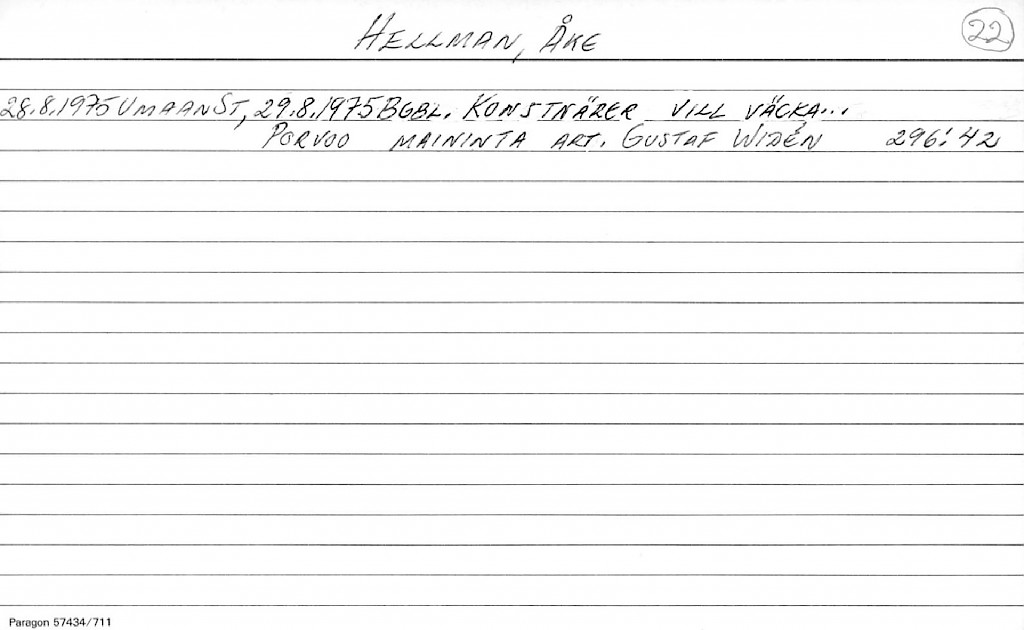 HELLMAN, ÅKE
22
28.8.1975 UMAAN ST, 29.8.1975 BGBL. KONSTNÄRER VILL VÄCKA...
PORVOO MAININTA ART. GUSTAF WIDÉN 296:42
Paragon 57434/711